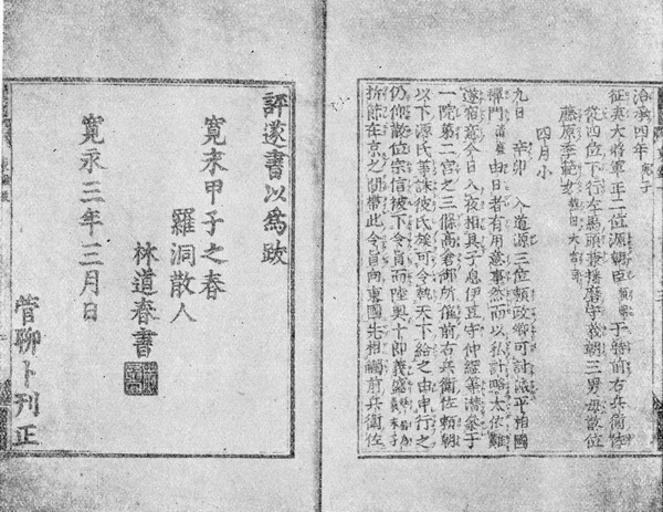 治承四年 庚子
征夷大將軍正二位源朝臣 頼朝 于時前右兵衛佐
從四位下行左馬頭兼播磨守義朝三男母散位
藤原季範女 熱田大宮司
四月小
九日 辛卯 入道源三位頼政卿可討滅平相國
禪門 清盛 由日者有用意事然而以私計略太依難
遂宿意今日入夜相具子息伊豆守仲綱等潜參于
一院第二宮之三條高倉御所催前右兵衛佐頼朝
以下源氏等誅彼氏族可令執天下給之由申行之
仍仰散位宗信被下令旨而陸奥十郎義盛 末子
折節在京之間帶此令旨向東國先相觸前兵衛佐
評遂書以爲跋
寛永甲子之春
羅洞散人
林道春書
寛永三年三月日
菅聊卜刊正